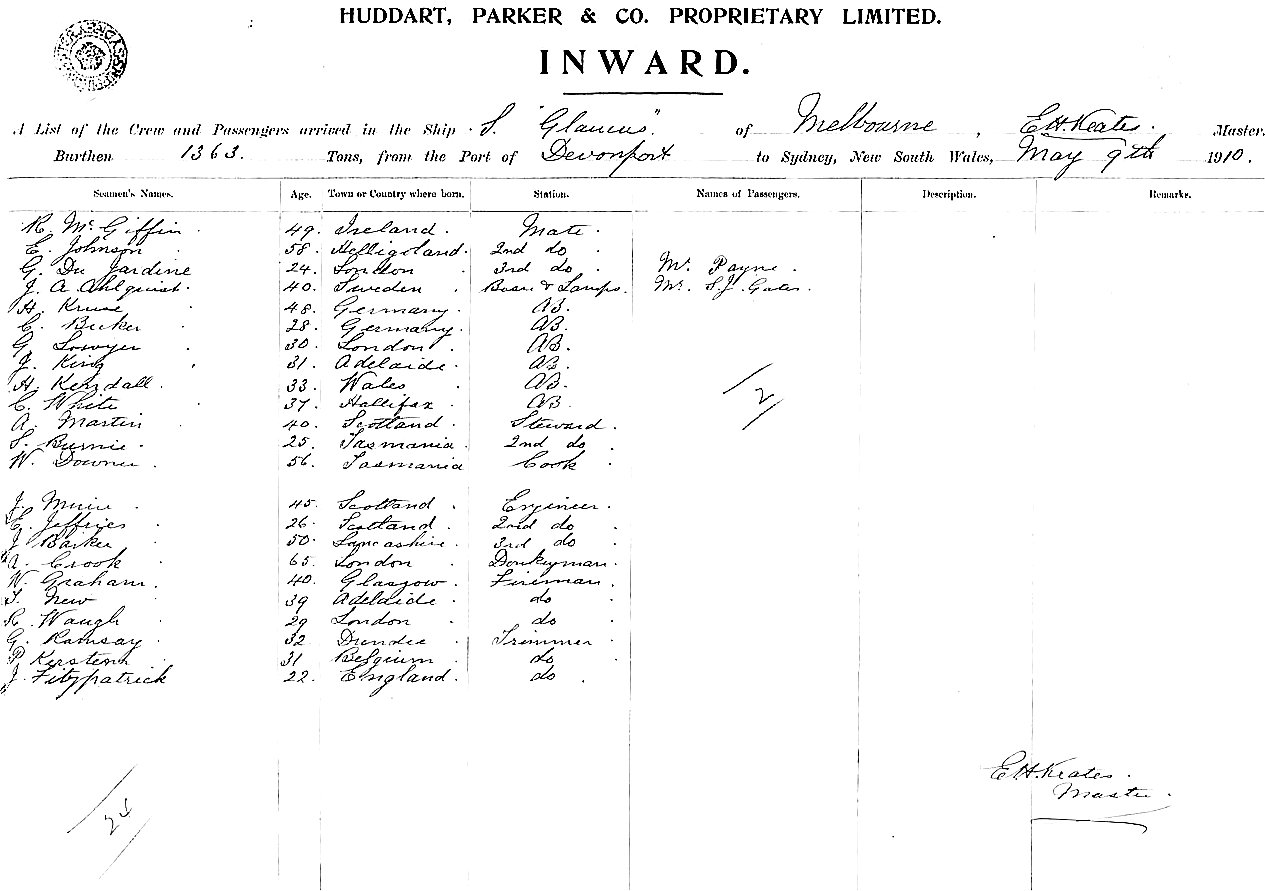 HUDDART, PARKER & CO. PROPRIETARY LIMITED.
INWARD.
A List of the Crew and Passengers arrived in the Ship S. "Glaucus" of Melbourne, E.H. Keates. Master.
Burthen 1363. Tons, from the Port of Devonport to Sydney, New South Wales, May 9th 1910.
Seamen's Names. Age. Town or Country where born. Station. Names of Passengers. Description. Remarks.
R. McGiffin 49. Ireland. Mate.
E. Johnson 58. Helligoland. 2nd do.
G. Du Jardine 24. London 3rd do. Mr. Payne.
J. A. Ahlquist. 40. Sweden Bosn & Lamps. Mr. S.J. Gales.
H. Kruse 48. Germany. AB.
C. Becker 28. Germany. AB.
G. Sawyer 30. London AB.
J. King 31. Adelaide. AB.
H. Kendall. 33. Wales AB.
C. White 37. Hallifax AB
2
A. Martin 40. Scotland Steward.
S. Burnie. 25. Tasmania. 2nd do
W. Downer. 56. Tasmania Cook
J. Muir 45. Scotland Engineer.
E. Jeffries 26. Scotland. 2nd do
J. Barker 50. Lancashire. 3rd do
Crook 65. London Donkeyman.
W. Graham. 40. Glasgow. Fireman.
New 39 Adelaide do
R. Waugh 29 London do
G. Ramsay 32 Dundee Trimmer
P. Kerstenn 31 Belgium do
J. Fitzpatrick 22. England. do
E.H. Keates.
Master.
24